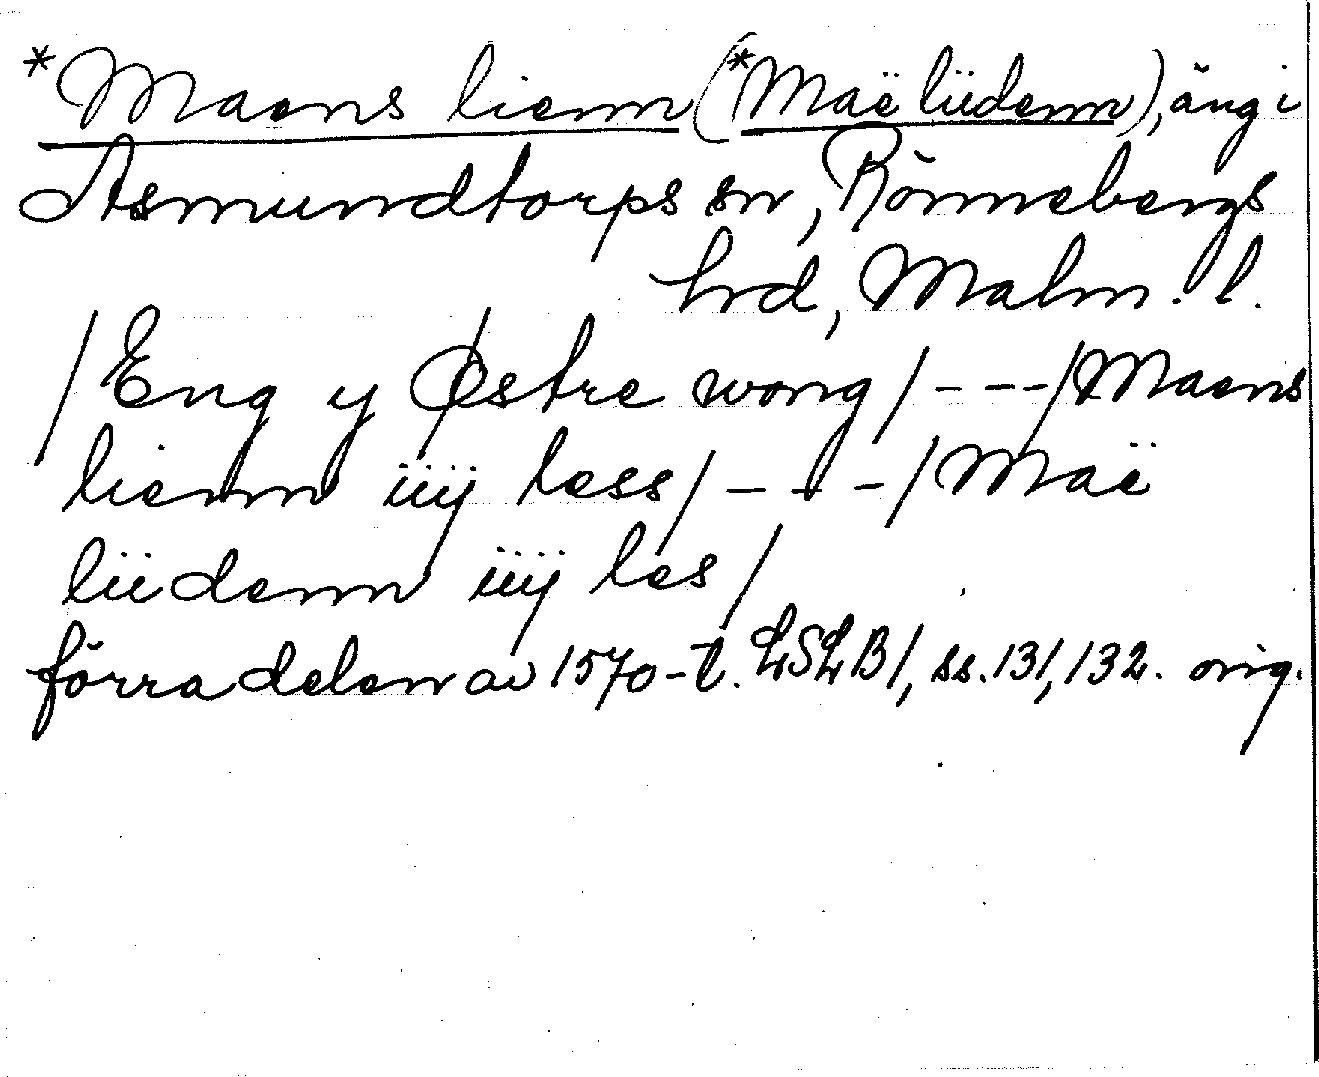 *Maens lienn (*Maë liidenn), äng i
Asmundtorps sn, Rönnebergs
hrd, Malm. l.
/Eng y Østre wong/---/Maens
lienn iiij less/---/Maë
liidenn iiij les/
förra delen av 1570-t. LSLB/, ss. 131, 132. orig.